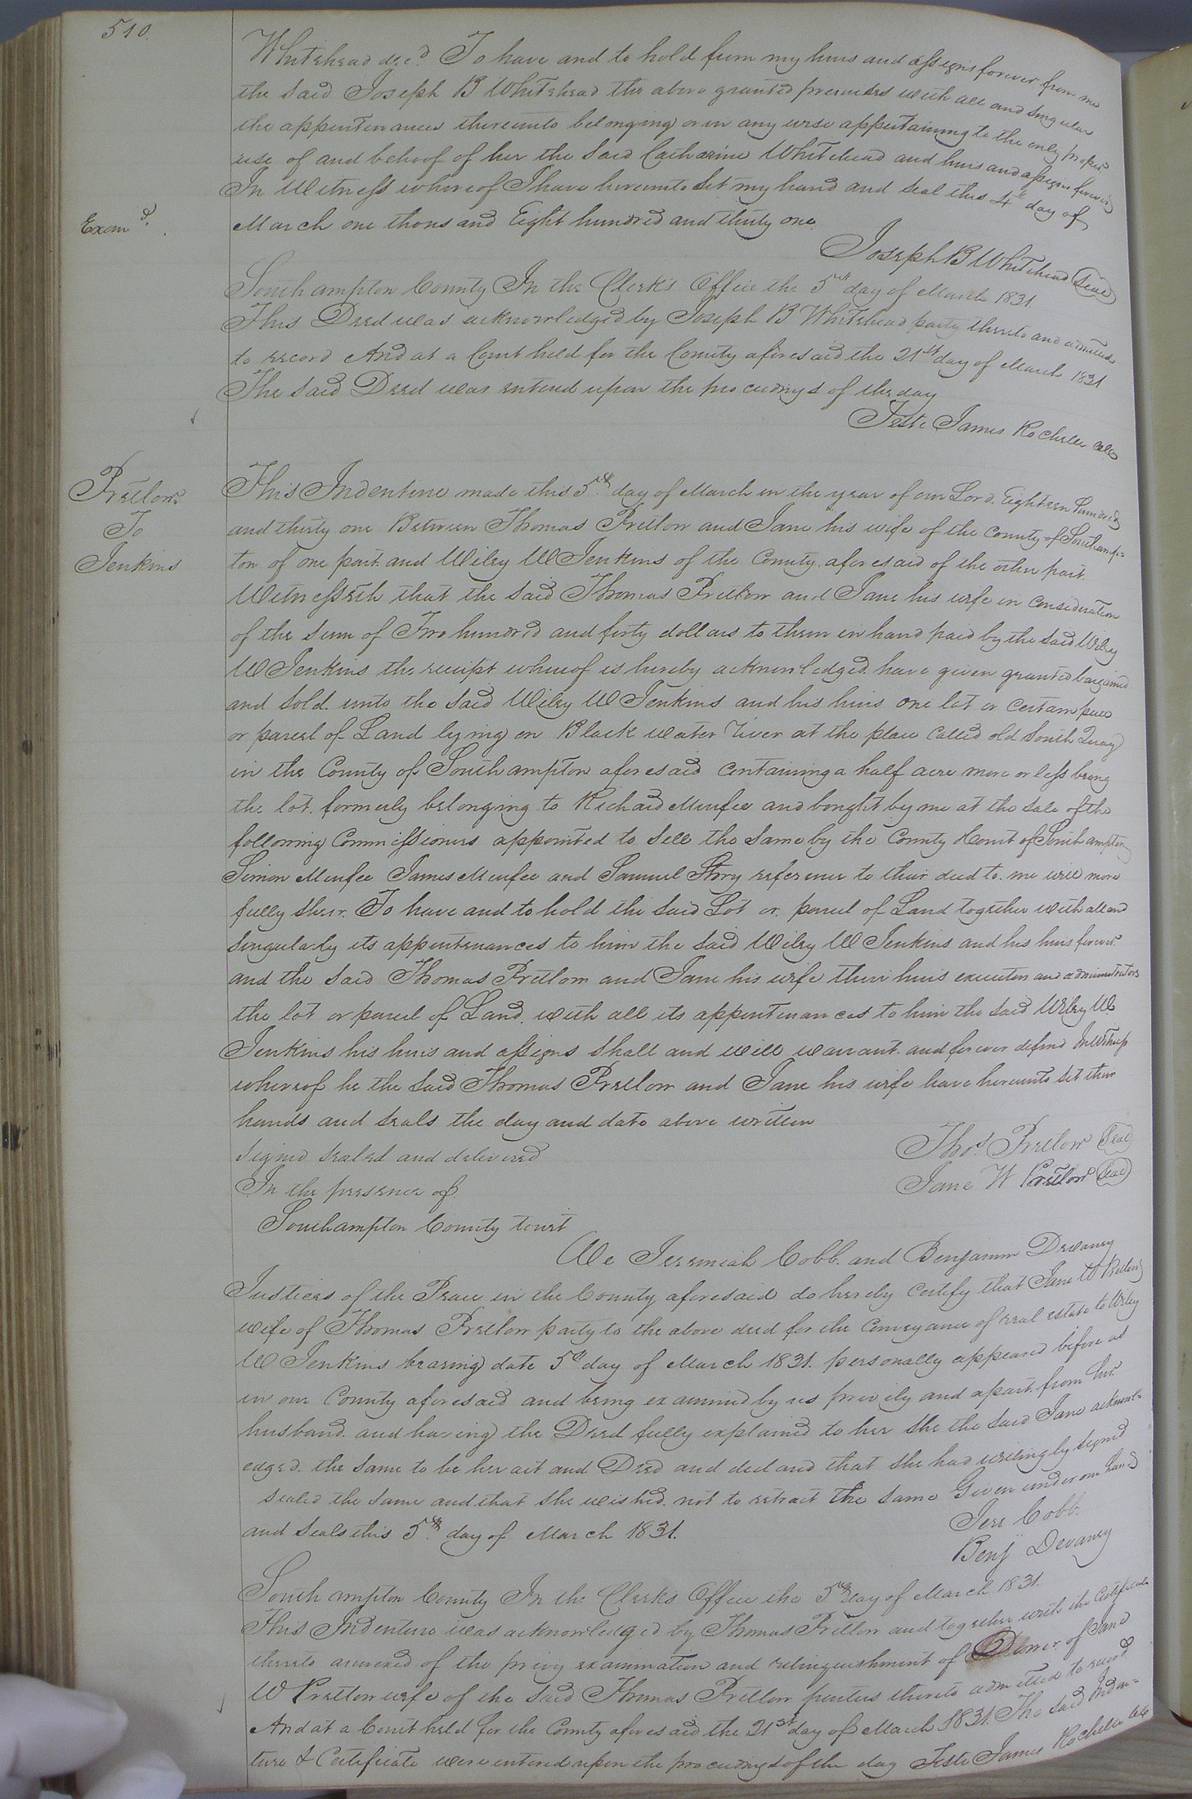 510.
Whitehead dec.d To have and to hold from my hiers and assigns forever from me
the said Joseph B Whitehead the above granted premises with all and singular
the appurtenances thereunto belonging or in any wise appertaining to the only proper
use of and behoof of her the said Catharine Whitehead and hiers and assigns forever
In Witness whereof I have hereunto set my hand and seal this 4th day of
Exam.d
March one thousand Eight hundred and thirty one
Joseph B Whitehead (Seal)
Southampton County In the Clerks Office the 5th day of March 1831
This Deed was acknowledged by Joseph B Whitehead party thereto and admitted
to record And at a Court held for the County aforesaid the 21st day of March 1831
The said Deed was entered upon the proceedings of the day
Teste James Rochelle
Pretlow
To
Jenkins
This Indenture made this 5th day of March in the year of our Lord Eighteen hundred
and thirty one Between Thomas Pretlow and Jane his wife of the county of Southamp-
ton of one part and Wiley W Jenkins of the County aforesaid of the other part
Witnesseth that the said Thomas Pretlow and Jane his wife in consideration
of the sum of Two hundred and forty dollars to them in hand paid by the said Wiley
W Jenkins the receipt whereof is hereby acknowledged have given granted bargained
and sold unto the said Wiley W Jenkins and his hiers one lot or certain piece
or parcel of Land lying on Black water River at the place called old South Quay
in the County of Southampton aforesaid containing a half acre more or less being
the lot formerly belonging to Richard Menfee and bought by me at the sale of the
following Commissioners appointed to sell the same by the County Court of Southampton
Simon Menfee James Menfee and Samuel Story reference to their deed to me will more
fully shew. To have and to hold the said Lot or parcel of Land together with all and
singularly its appurtenances to him the said Wiley W Jenkins and his hiers forever
and the said Thomas Pretlow and Jane his wife their hiers executors and administrators
the lot or parcel of Land with all its appurtenances to him the said Wiley W
Jenkins his hiers and assigns shall and will warrant and forever defend In Witness
whereof he the said Thomas Pretlow and Jane his wife have hereunto set their
hands and seals the day and date above written
Signed sealed and delivered
Thos. Pretlow (Seal)
In the presence of
Jane W Pretlow (Seal)
Southampton County towit
We Jeremiah Cobb and Benjamin Devaney
Justices of the Peace in the County aforesaid do hereby certify that Jane W Pretlow
wife of Thomas Pretlow party to the above deed for the conveyance of real estate to Wiley
W Jenkins bearing date 5th day of March 1831 personally appeared before us
in our County aforesaid and being examined by us privily and apart from her
husband and having the Deed fully explained to her she the said Jane acknowl-
edged the same to be her act and Deed and declared that she had willingly signed
sealed the same and that she wished not to retract the same Given under our hands
and seals this 5th day of March 1831.
Jere Cobb
Benj Devaney
Southampton County In the Clerks Office the 5th day of March 1831.
This Indenture was acknowledged by Thomas Pretlow and together with the Certificate
thereto annexed of the privy examination and relinquishment of Dower of Jane
W Pretlow wife of the said Thomas Pretlow parties thereto admitted to record
And at a Court held for the County aforesaid the 21st day of March 1831. The said Inden-
ture & Certificate were entered upon the proceedings of the day Teste James Rochelle